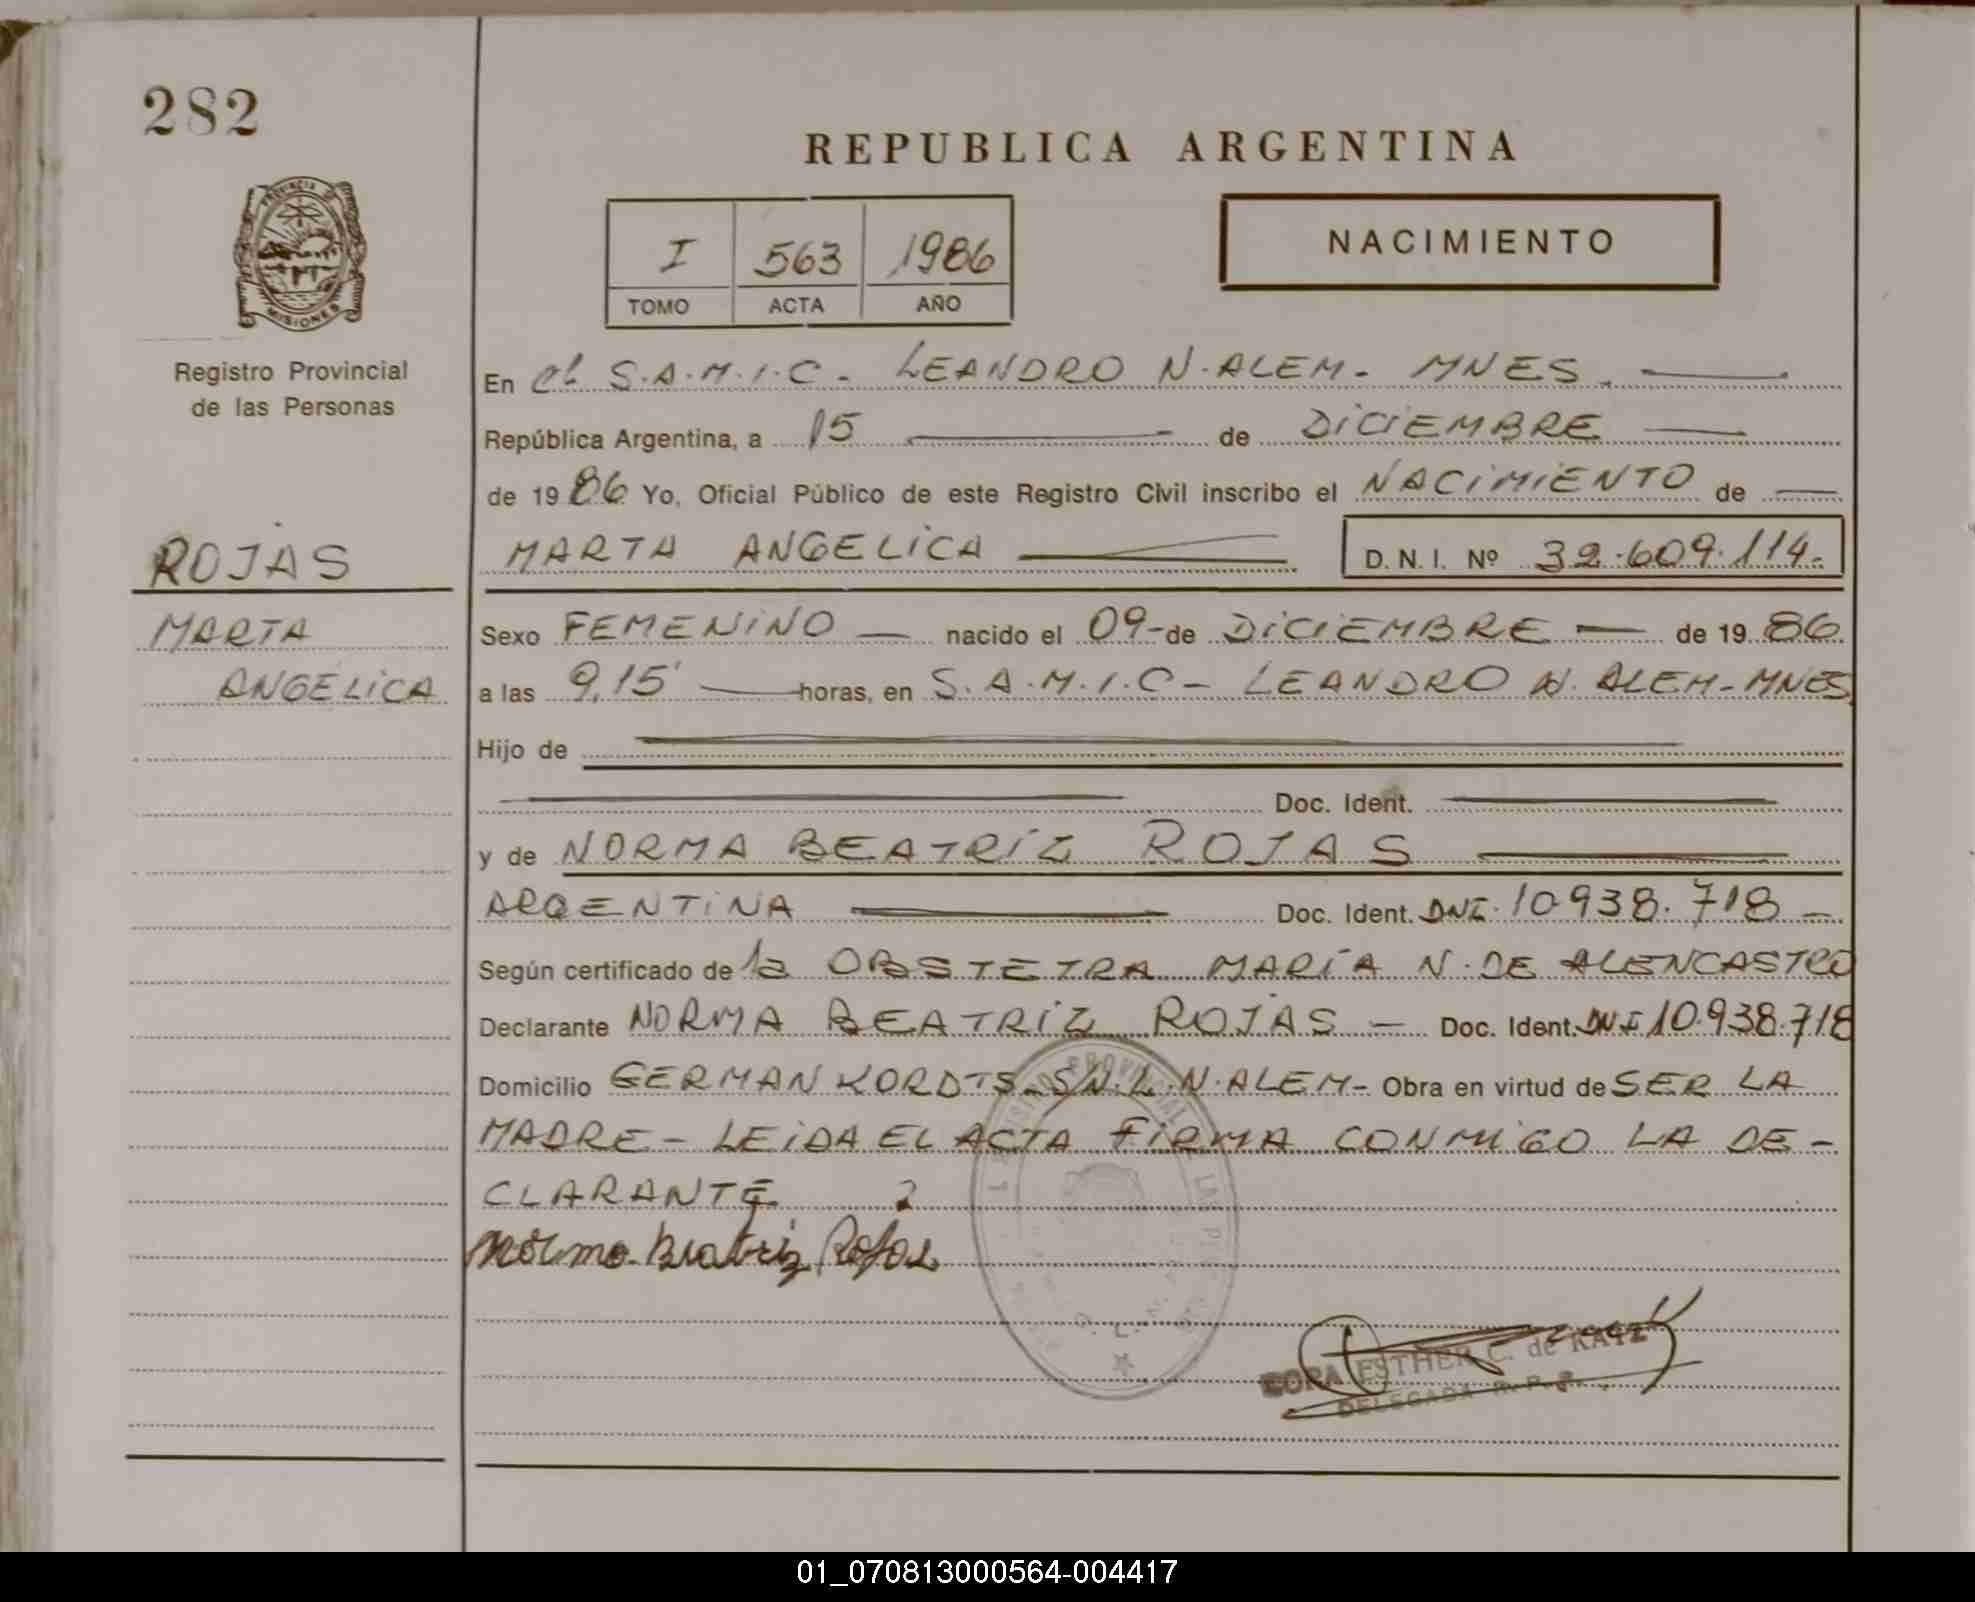 282
REPUBLICA ARGENTINA
PROVINCIA DE
MISIONES
Registro Provincial
de las Personas
I 563 1986
TOMO ACTA AÑO
NACIMIENTO
En el S.A.M.I.C. - LEANDRO N. ALEM - MNES
República Argentina, a 15 de DICIEMBRE
de 1986 Yo, Oficial Público de este Registro Civil inscribo el NACIMIENTO de
ROJAS
MARTA
ANGÉLICA
MARTA ANGELICA D. N. I. Nº 32.609.114.-
Sexo FEMENINO nacido el 09- de DICIEMBRE de 1986
a las 9,15' horas, en S.A.M.I.C - LEANDRO N. ALEM - MNES
Hijo de
Doc. Ident.
y de NORMA BEATRIZ ROJAS
ARGENTINA Doc. Ident. DNI. 10.938.718 -
Según certificado de la OBSTETRA MARÍA N. DE ALENCASTRO
Declarante NORMA BEATRIZ ROJAS - Doc. Ident. DNI 10.938.718
Domicilio GERMAN KORDTS - SN. L.N. ALEM - Obra en virtud de SER LA
MADRE - LEIDA EL ACTA FIRMA CONMIGO LA DE-
CLARANTE
Norma Beatriz Rojas
ESTHER C. de KATZ
DELEGADA R. P. P.
01_070813000564-004417